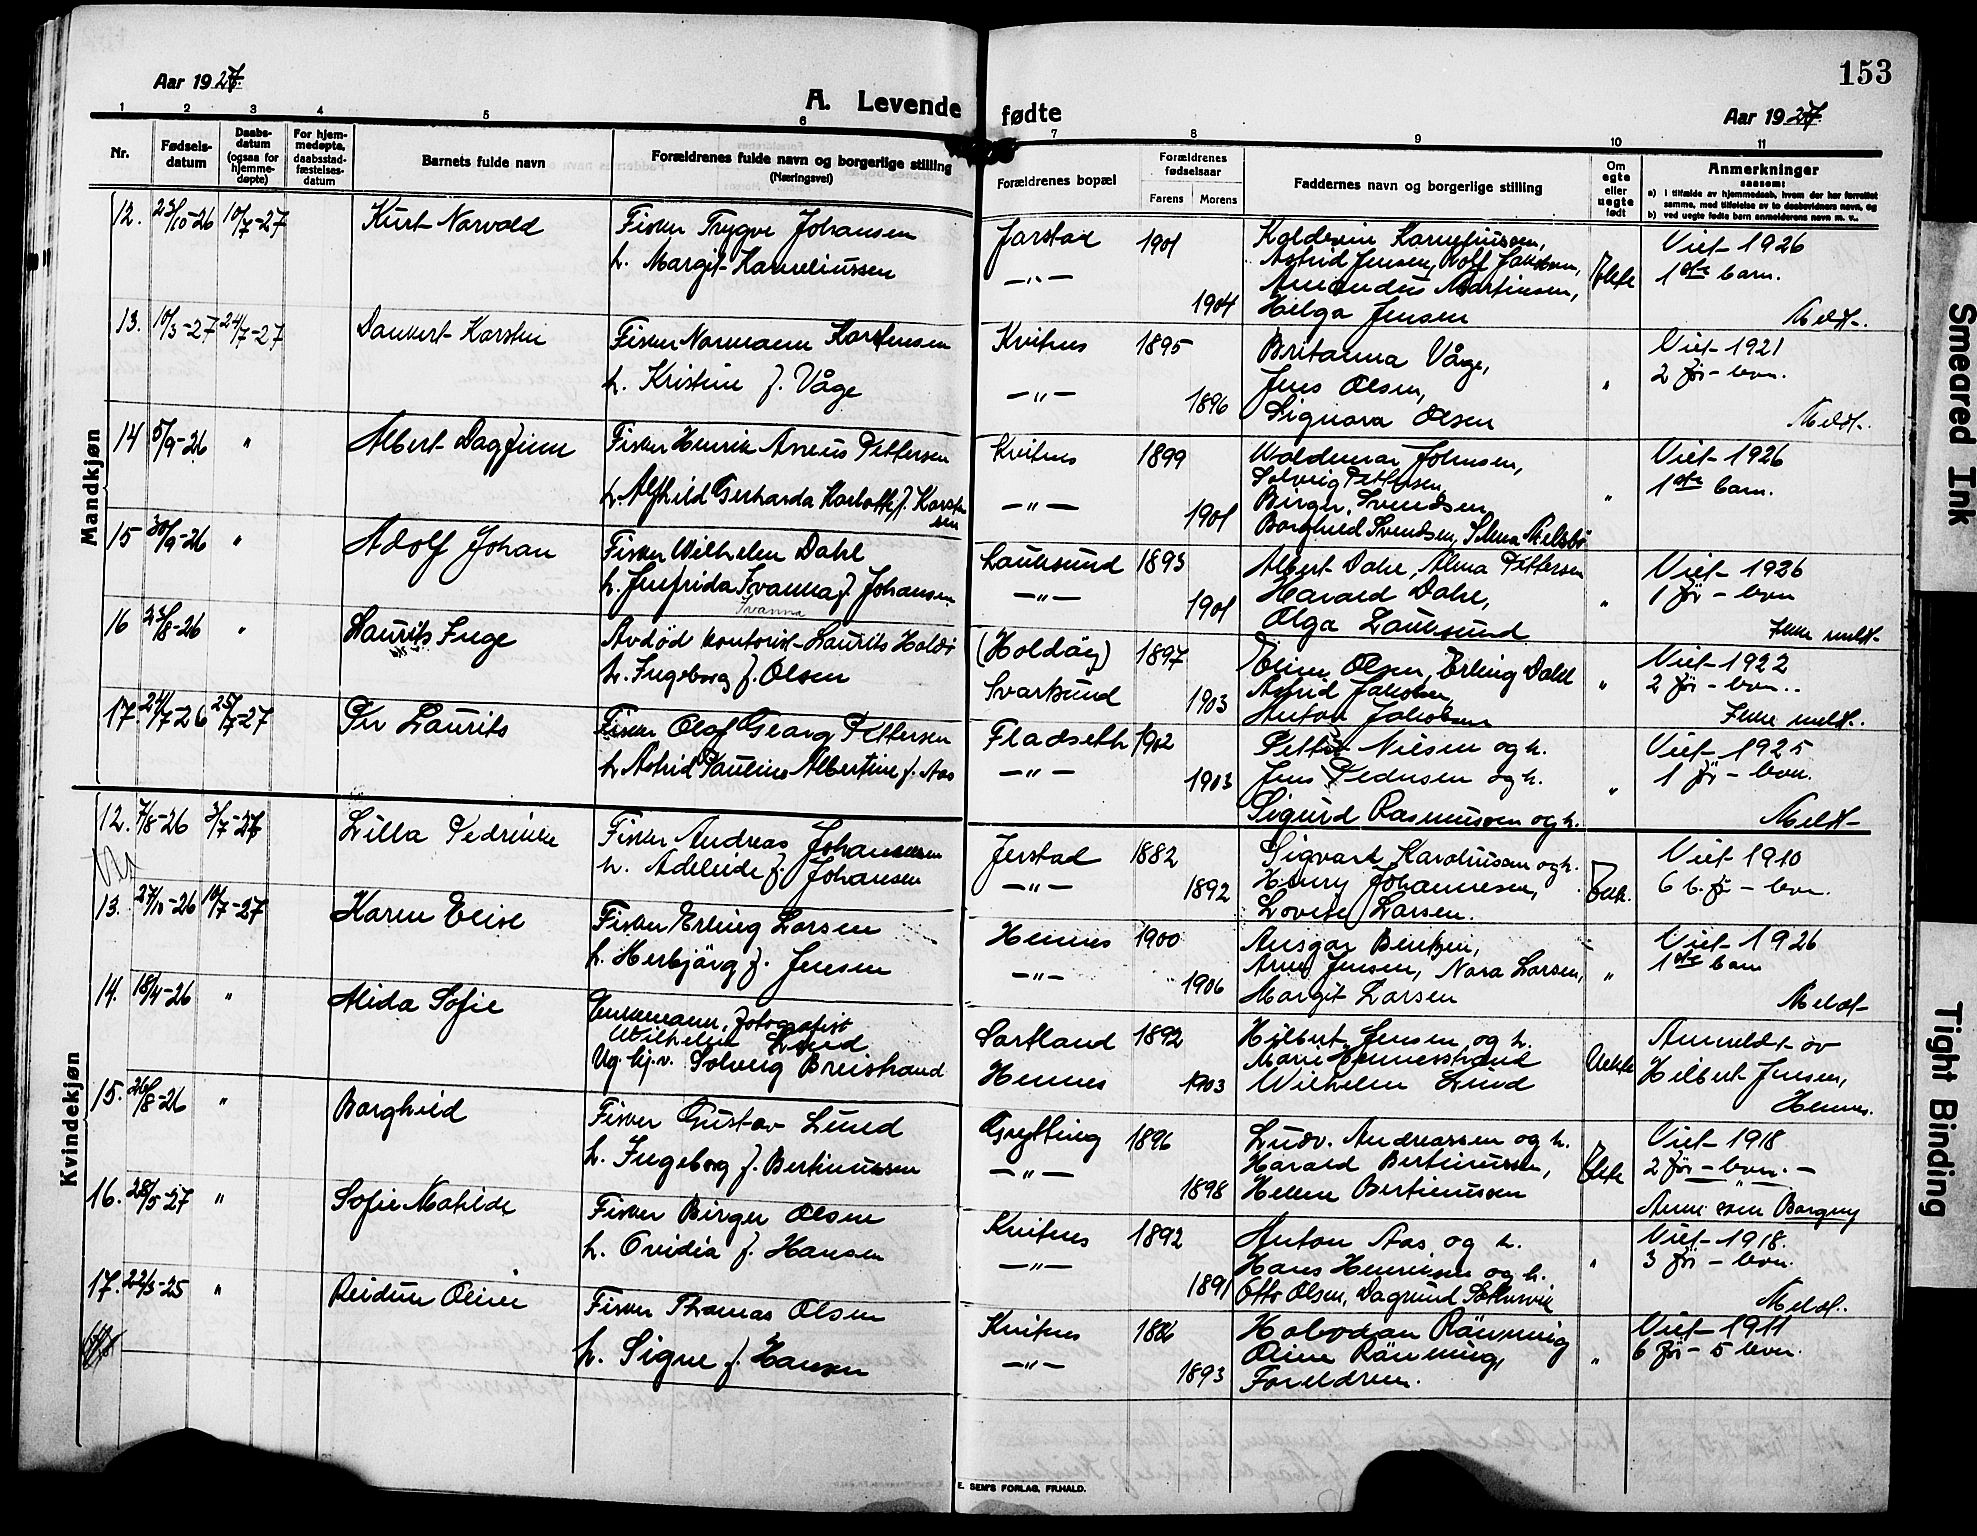 Aar 1927.
A. Levende fødte
Aar 1927.
153
1 2 3 4 5 6 7 8 9 10 11
Nr.
Fødsels-
datum
Daabs-
datum
(ogsaa for
hjemme-
døpte)
For hjem-
medøpte,
daabsstad-
fæstelses-
datum
Barnets fulde navn
Forældrenes fulde navn og borgerlige stilling
(Næringsvei)
Forældrenes bopæl
Forældrenes
fødselsaar
Farens Morens
Faddernes navn og borgerlige stilling
Om
egte
eller
uegte
født
Anmerkninger
saasom:
a) I tilfælde av hjemmedaab, hvem der har forrettet
samme, med tilføielse av to daabsvidners navn, og
b) ved uegte fødte barn anmelderens navn m. v..
Mandkjøn
12. 23/10-26 10/7-27 Kurt Norvald Fisker Trygve Johansen Jorstad 1901 Korneliussen, Viet 1926
h. Margit Korneliussen —"— 1904 Astrid Jensen, Rolf Jakobsen, Ekte 1ste barn.
Amandus Martinsen,
Helga Jensen Meldt.
13. 10/3-27 24/7-27 Dankert Karstein Fisker Normann Karstensen Kvitnes 1895 Britanna Våge, Viet 1921
h. Kristine f. Våge —"— 1896 Jens Olsen, " 2 før - lever.
Signora Olsen Meldt.
14 5/9-26 " Albert Dagfinn Fisker Henrik Arneus Pettersen Kvitnes 1899 Woldemar Johnsen, Viet 1926
h. Alfhild Gerharda Karlotte f. Karsten
sen —"— 1901 Solveig Pettersen " 1ste barn.
Birger Svendsen
Borghild Svendsen, Selma
15 30/9-26 " Adolf Johan Fisker Wilhelm Dahl Lauksund 1893 Albert Dahl, Alma Pettersen Viet 1926
h. Jenfrida Ivanna f. Johansen —"— 1901 Harald Dahl, " 1 før - lever
Ivanna
Olga Lauksund Ikke meldt
16 23/8-26 " Laurits Inge Avdød kontorist Laurits Holdø (Holdøy) 1897 Eline Olsen, Erling Dahl Viet 1922
h. Ingeborg f. Olsen Svartsund 1903 Astrid Jakobsen " 2 før - lever.
Anton Jakobsen Ikke meldt.
17. 24/7-26 25/7-27 Per Laurits Fisker Olaf Georg Pettersen Fladseth 1902 Petter Nilsen og h. Viet 1925
h. Astrid Pauline Albertine f. Aas —"— 1903 Jens Pedersen og h. " 1 før - lever.
Sigurd Rasmussen og h. Meldt
Kvindekjøn
12. 7/8-26 3/7-27 Lilla Pedrikke Fisker Andreas Johannesen Jorstad 1882 Sigvart Karoliussen og h. Viet 1910
h. Adeleide f. Johansen —"— 1892 Henry Johannesen, Ekte. 6 b. før - lever.
Lovise Larsen.
13. 27/10-26 10/7-27 Karen Elise Fisker Erling Larsen Hennes 1900 Ansgar Bentzen, Viet 1926
h. Herbjörg f. Jensen —"— 1906 Arne Jensen, Nora Larsen, " 1ste barn
Margit Larsen Meldt
14. 18/4-26 " Alida Sofie Enkemann, fotografist
Wilhelm Lund Sortland 1892 Hilbert Jensen og h. Anmeldt av
Ug. tj.v. Solveig Breistrand Hennes 1903 Marie Hennesstrand Uekte Hilbert Jensen,
Wilhelm Lund Hennes.
15. 26/8-26 " Borghild Fisker Gustav Lund Grytting 1896 Ludv. Andreassen og h. Viet 1918
h. Ingeborg f. Bertinussen —"— 1898 Harald Bertinussen, Ekte 2 før - lever. —
Helene Bertinussen Anm. som Borgny
16. 28/5-27 " Sofie Matilde Fisker Birger Olsen Kvitnes 1892 Anton Aas og h. Viet 1918.
h. Ovidia f. Hansen —"— 1891 Hans Henriksen og h. " 3 før - lever.
Otto Olsen, Dagrund Meldt.
17. 22/3-25 " Reidun Oline Fisker Thomas Olsen Kvitnes 1886 Halvdan Rönning Viet 1911
h. Signe f. Hansen —"— 1893 Oline Rönning, " 6 før - 5 lever.
Foreldrene.
E. SEM'S FORLAG, FR.HALD.
Smeared Ink
Tight Binding